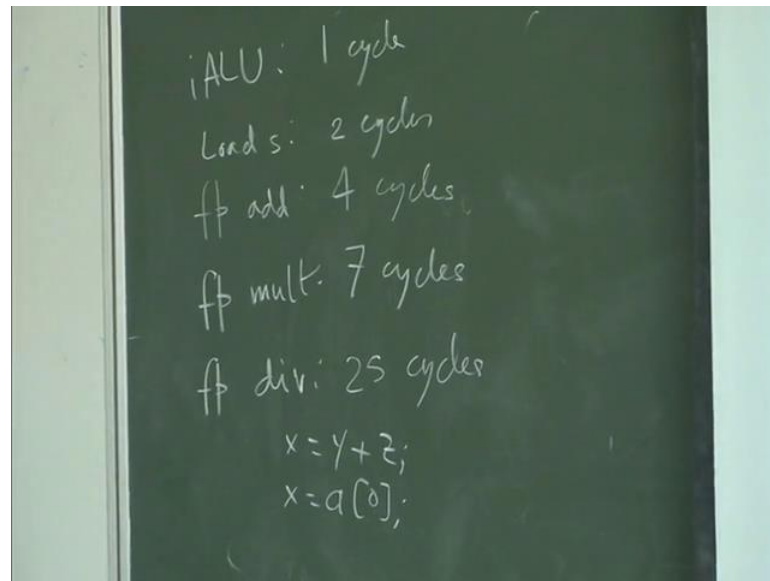 iALU: 1 cycle
Loads: 2 cycles
fp add: 4 cycles
fp mult. 7 cycles
fp div: 25 cycles
x=y+z;
x=a[0];